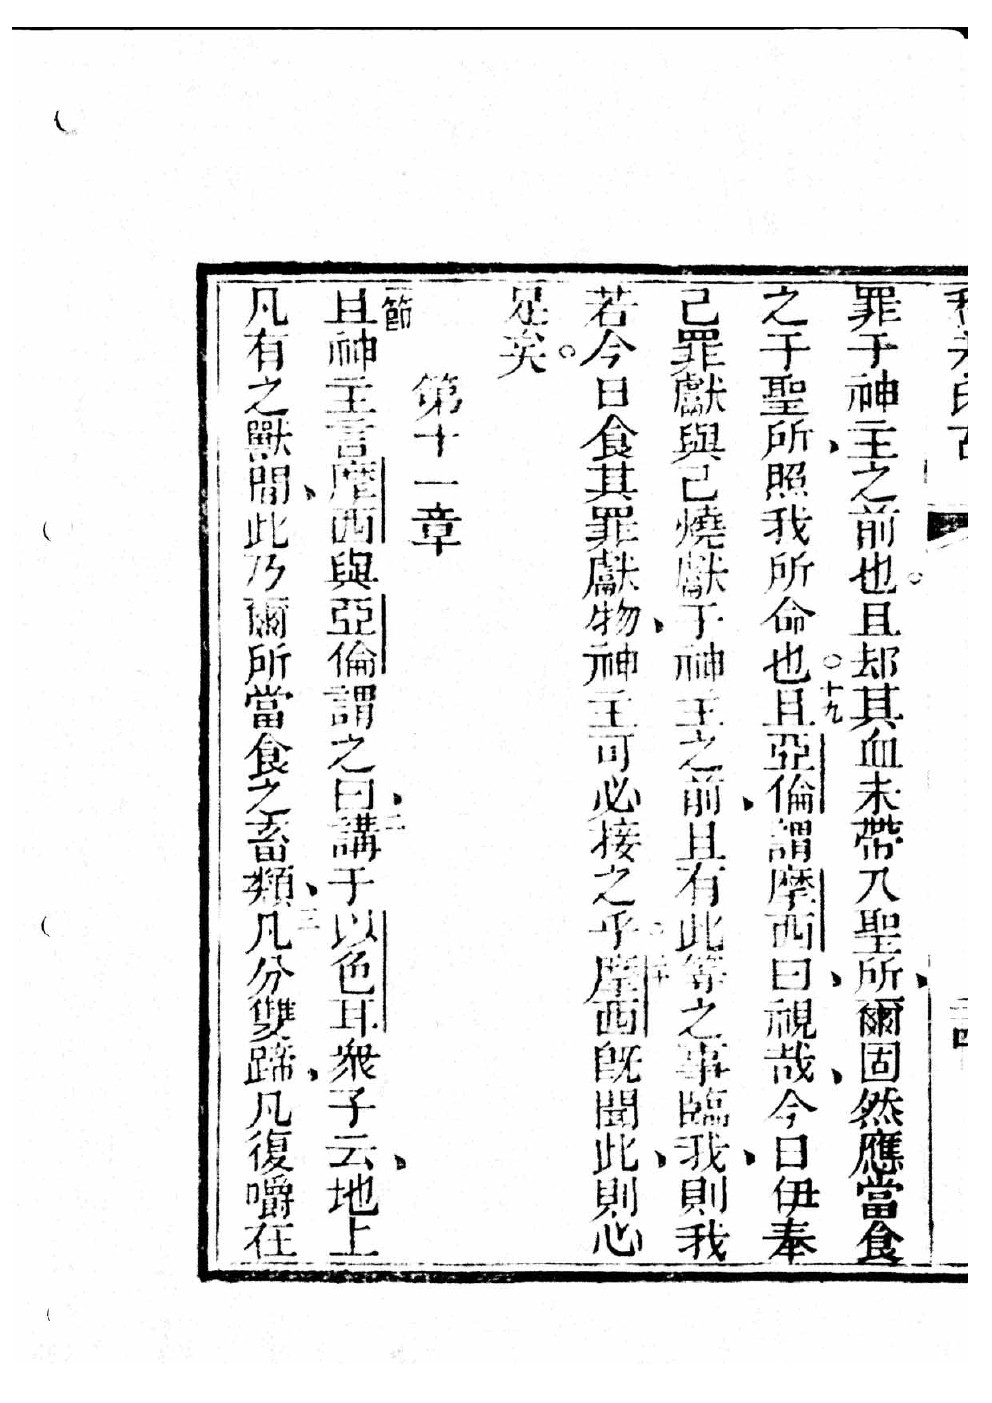 罪于神主之前也。且却其血未帶入聖所、爾固然應當食
之于聖所、照我所命也。十九且亞倫謂摩西曰、視哉、今日伊奉
己罪獻與己燒獻于神主之前、且有此等之事臨我、則我
若今日食其罪獻物、神主可必接之乎。二十摩西既聞此、則心
足矣。
第十一章
節且神主言摩西與亞倫謂之曰、二講于以色耳衆子云、地上
凡有之獸間、此乃爾所當食之畜類、三凡分雙蹄、凡復嚼在